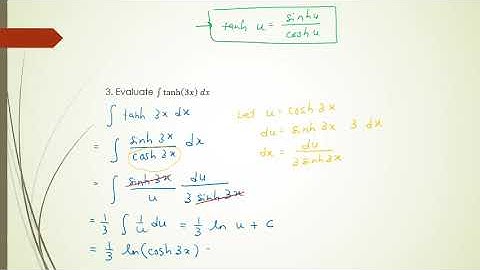 tanh u = sinh u / cosh u
3. Evaluate ∫ tanh(3x) dx
∫ tanh 3x dx
= ∫ sinh 3x / cosh 3x dx
= ∫ sinh 3x / u du / 3 sinh 3x
= 1/3 ∫ 1/u du = 1/3 ln u + c
= 1/3 ln(cosh 3x)
Let u = cosh 3x
du = sinh 3x 3 dx
dx = du / 3 sinh 3x